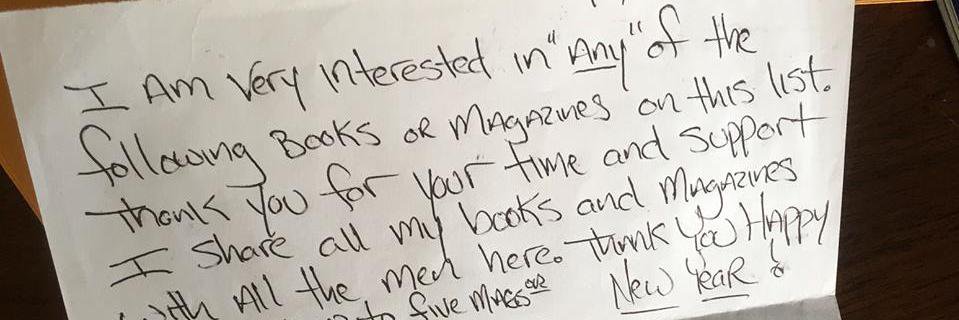 I Am Very interested in "Any" of the
following Books or Magazines on this list.
thank you for your time and support
I share all my books and Magazines
with All the men here. Thank you Happy
to five Mags our New Year